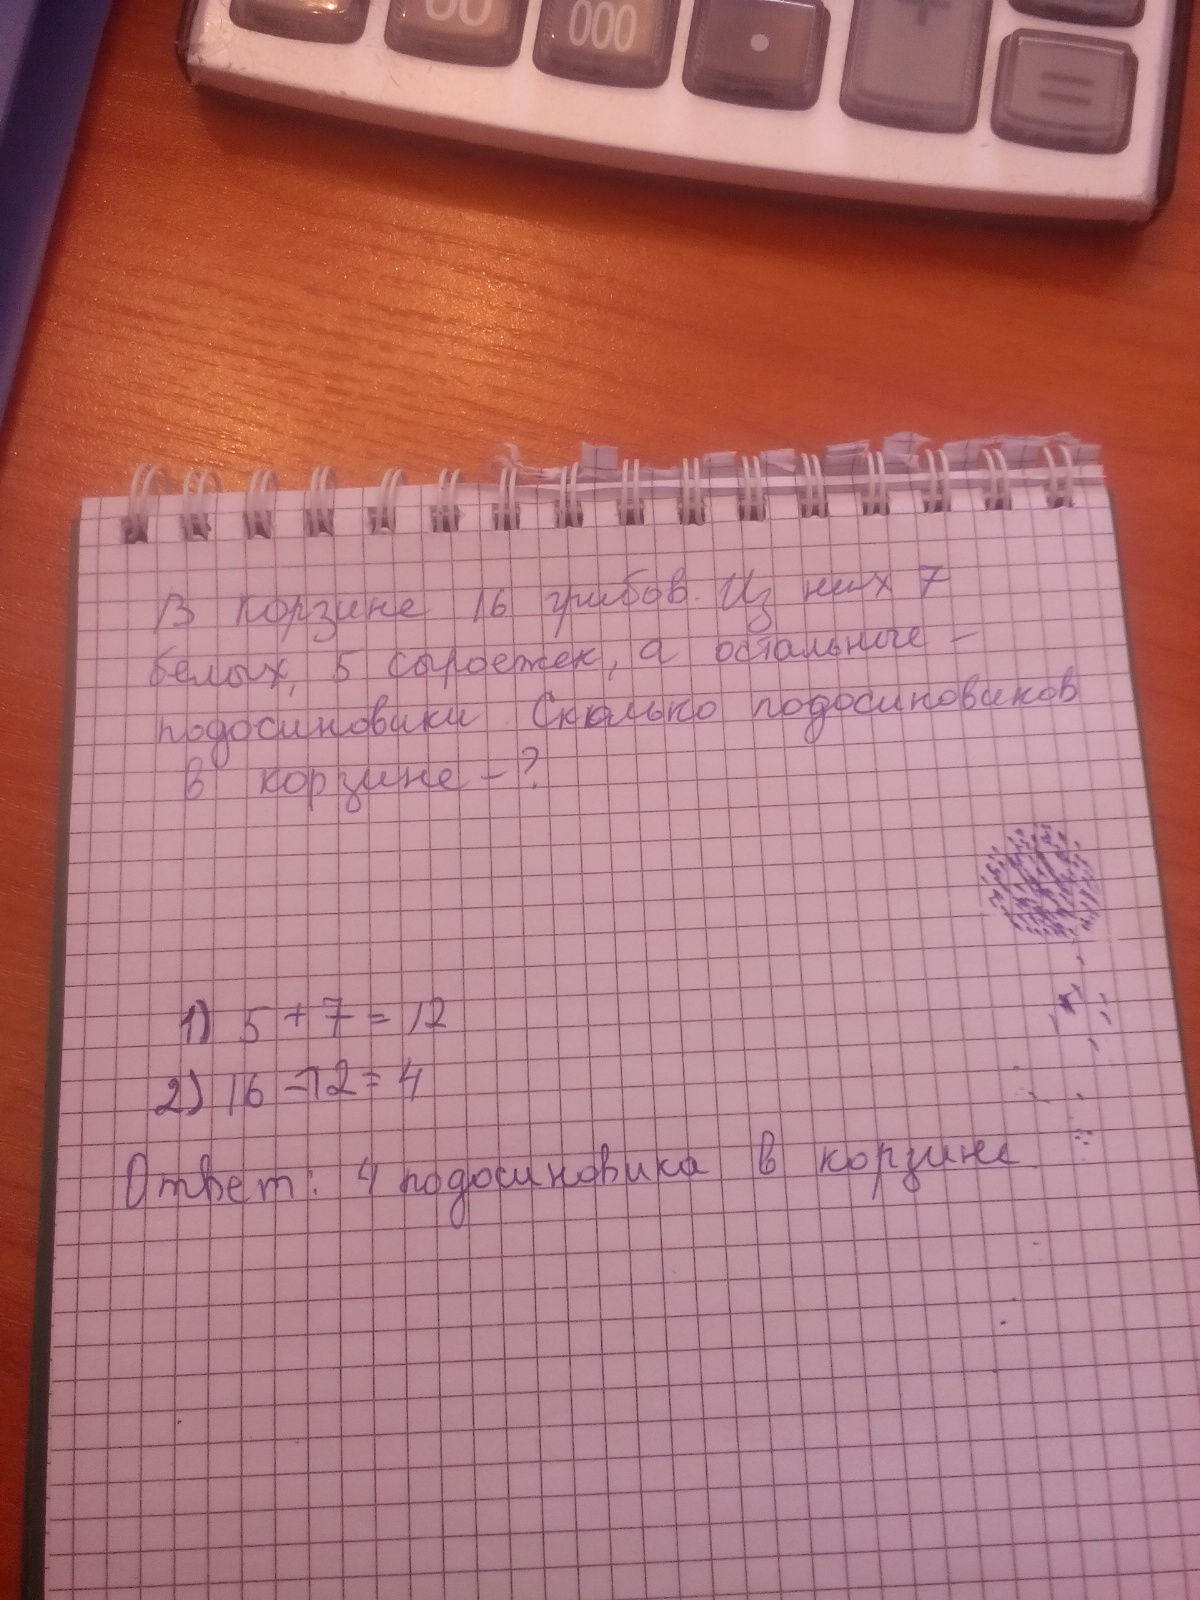 00
000
.
+
=
В корзине 16 грибов. Из них 7
белых, 5 сыроежек, а остальные –
подосиновики. Сколько подосиновиков
в корзине – ?
1) 5 + 7 = 12
2) 16 – 12 = 4
Ответ: 4 подосиновика в корзине